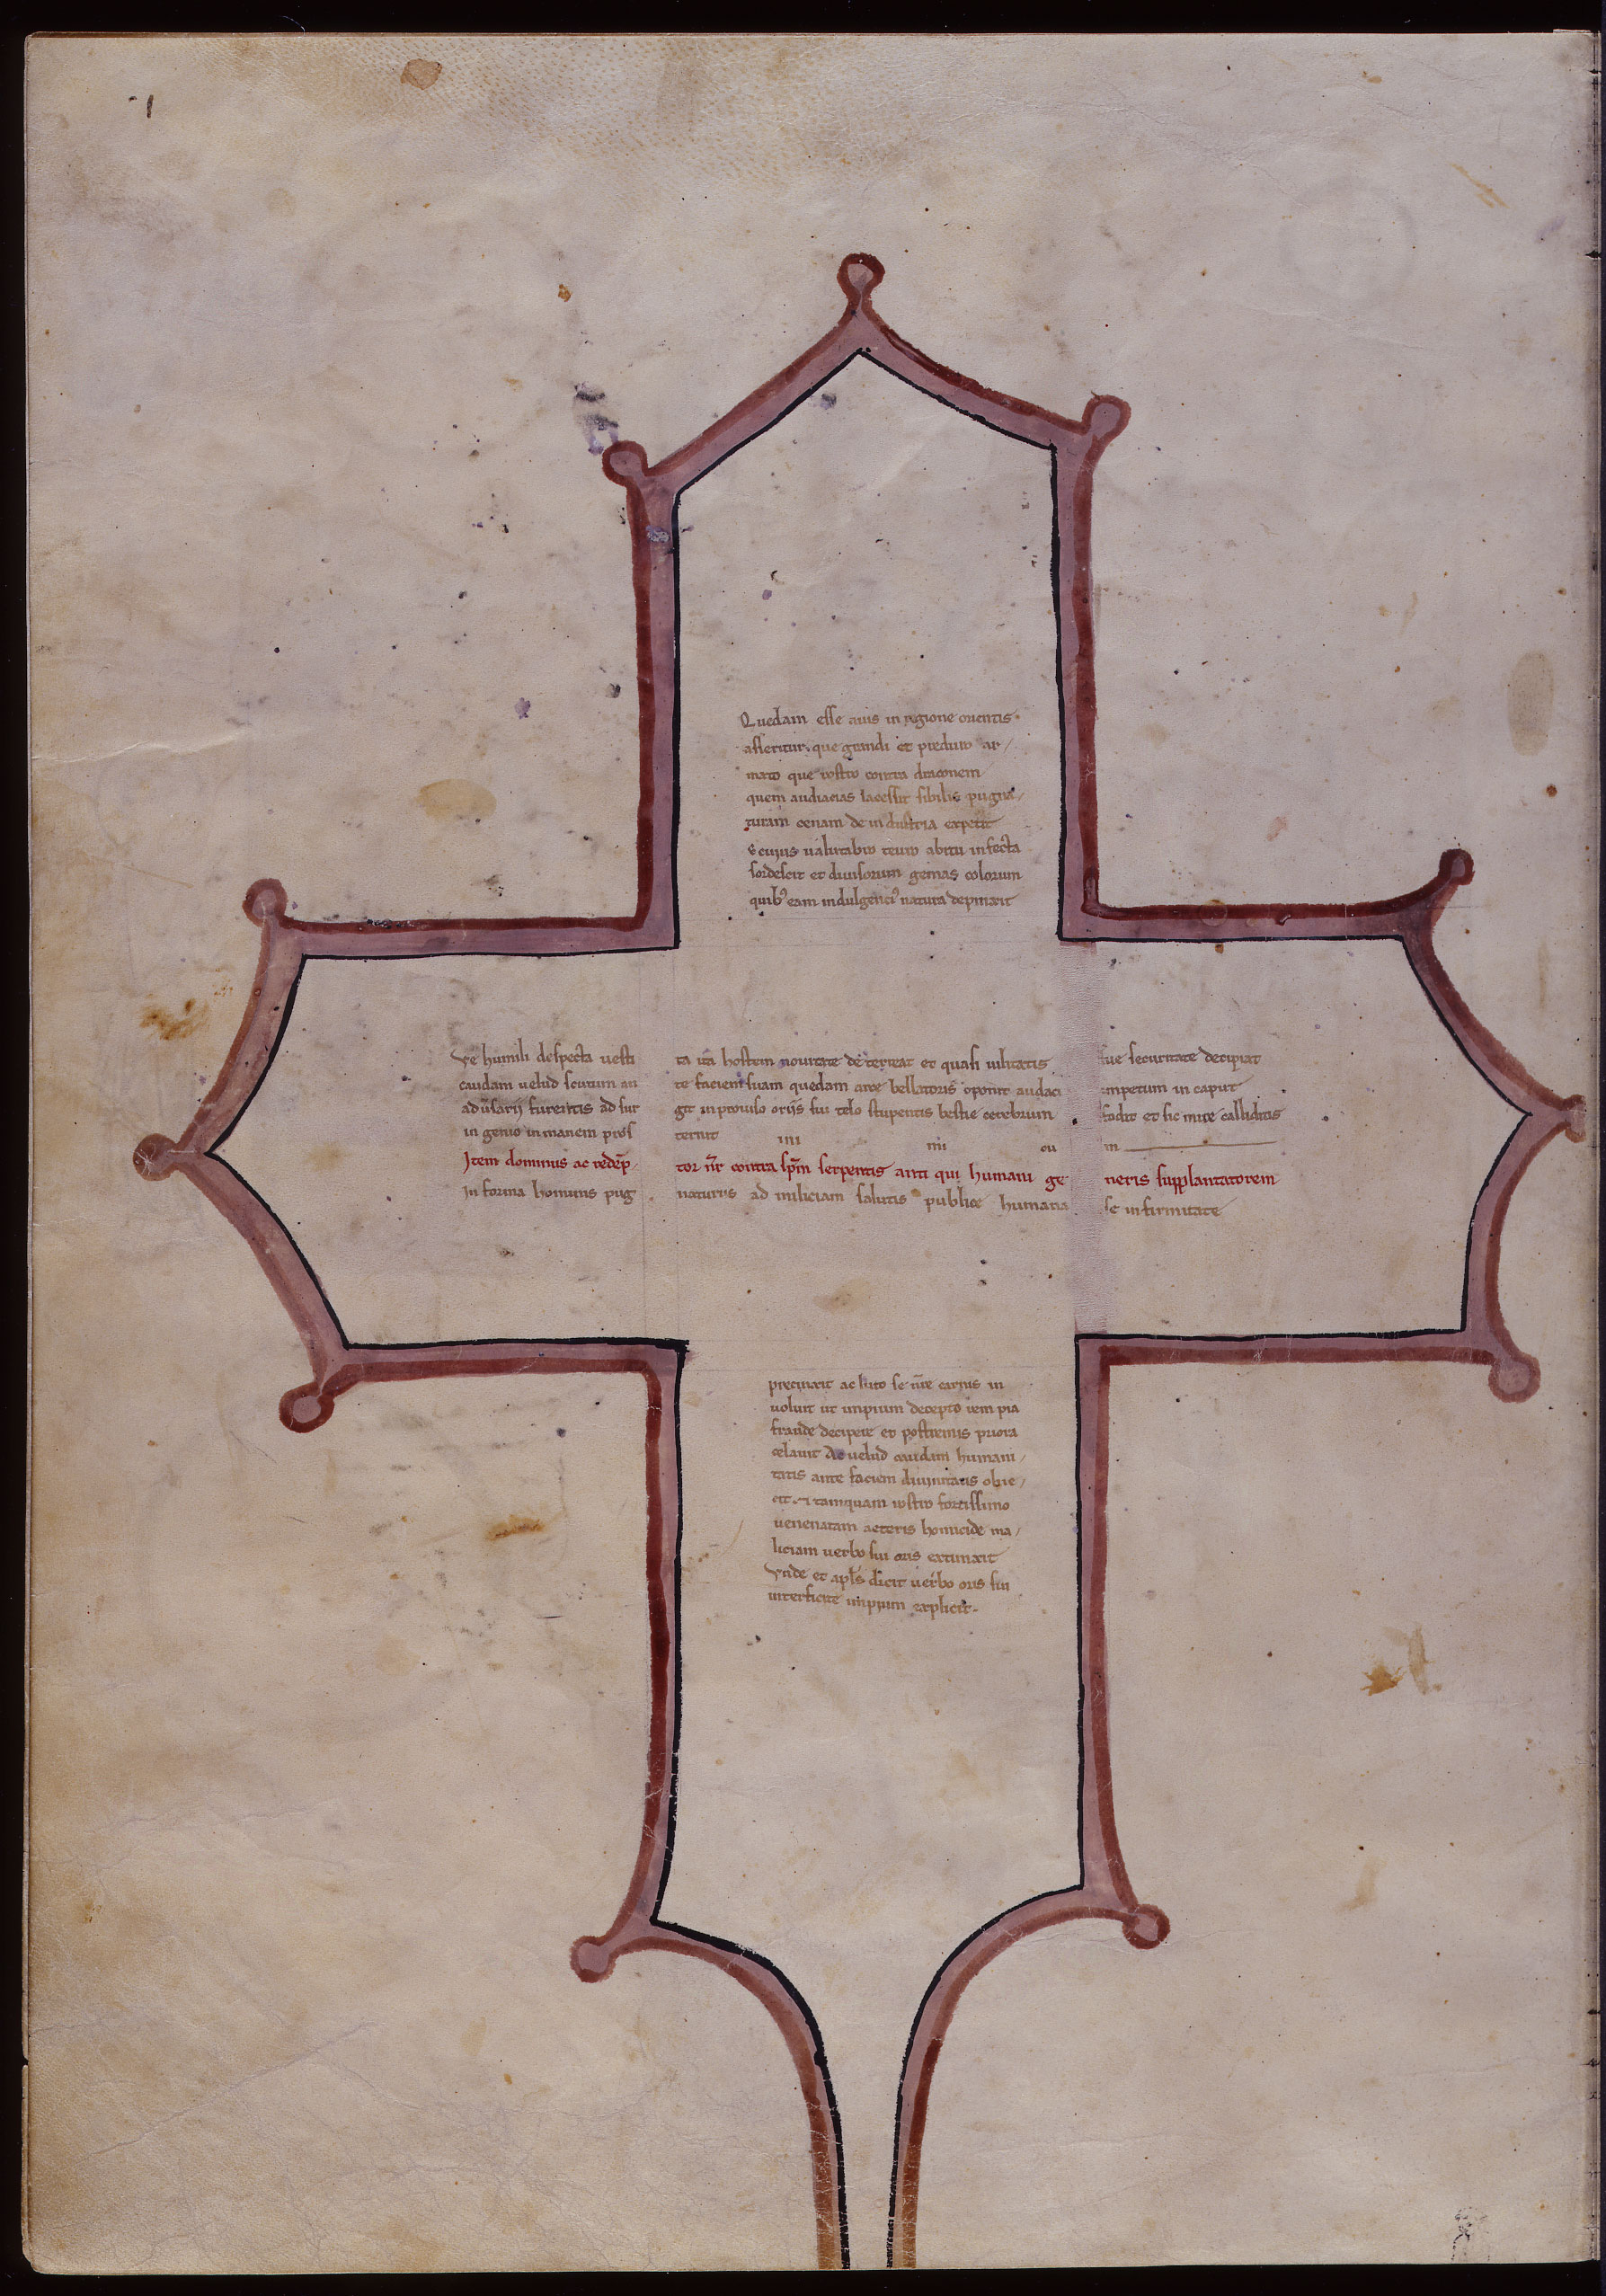 Quedam esse auis in regione orientis
asseritur. que grandi et preduro ar/
mato que rostro contra draconem
quem audacias lacessit sibilis pugna/
turam cenam de industria expetit
fordescit et diuisorum gemas colorum
quib' eam indulgenci' natura depinxit
Ve humili despecta uesti ta ita hostem nouitate de terreat et quasi uilitatis sue securitate decipiat
caudam uelud scutum an te faciem suam quedam arte bellatoris oponit audaci impetum in caput
adūsarij furentis ad sur git inprouiso oriis sui telo stupentis bestie cerebrum fodit et sic mire calliditis
in genio inmanem pros ternit
Item dominus ac redēp tor nr̄ contra spm̄ serpentis anti qui humani ge neris supplantatorem
In forma hominis pug naturus ad miliciam salutis publice humana se infirmitate
precinxit ac luto se nr̄e carnis in
uoluit ut impium deceptorem pia
fraude decipere et postremis priora
celauit Ac uelud caudam humani/
tatis ante faciem diuinitatis obie/
cit. & tamquam rostro fortissimo
uenenatam ueteris homicide ma/
liciam uerbo sui oris extinxit
Vnde et apls dicit uerbo oris sui
interficite impium explicit.